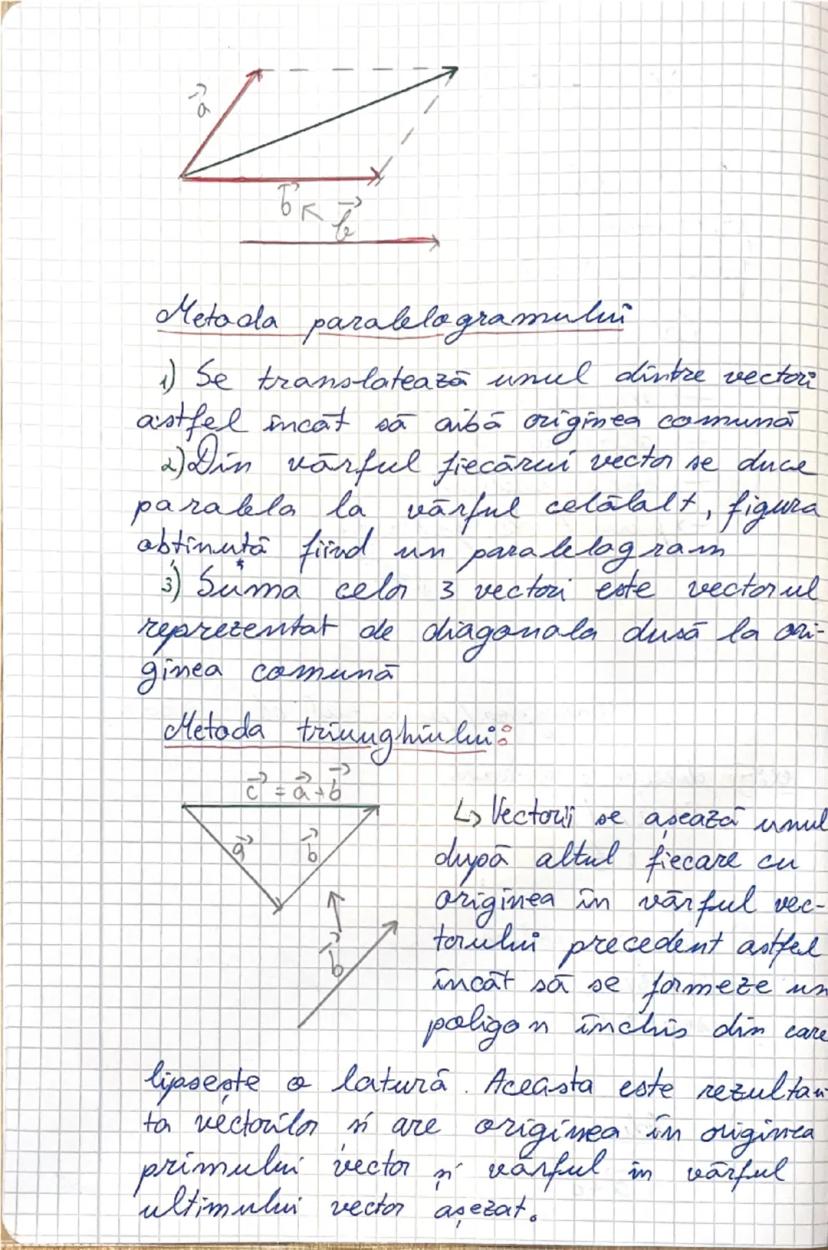 a
b
b
Metoda paralelogramului
1) Se translatează unul dintre vectori
astfel încât să aibă originea comună
2) Din vârful fiecărui vector se duce
paralela la vârful celălalt, figura
obținută fiind un paralelogram
3) Suma celor 3 vectori este vectorul
reprezentat de diagonala dusă la ori-
ginea comună
Metoda triunghiului:
c = a + b
a b
b
↳ Vectorii se așează unul
după altul fiecare cu
originea în vârful vec-
torului precedent astfel
încât să se formeze un
poligon închis din care
lipsește o latură. Aceasta este rezultan-
ta vectorilor și are originea în originea
primului vector și vârful în vârful
ultimului vector așezat.